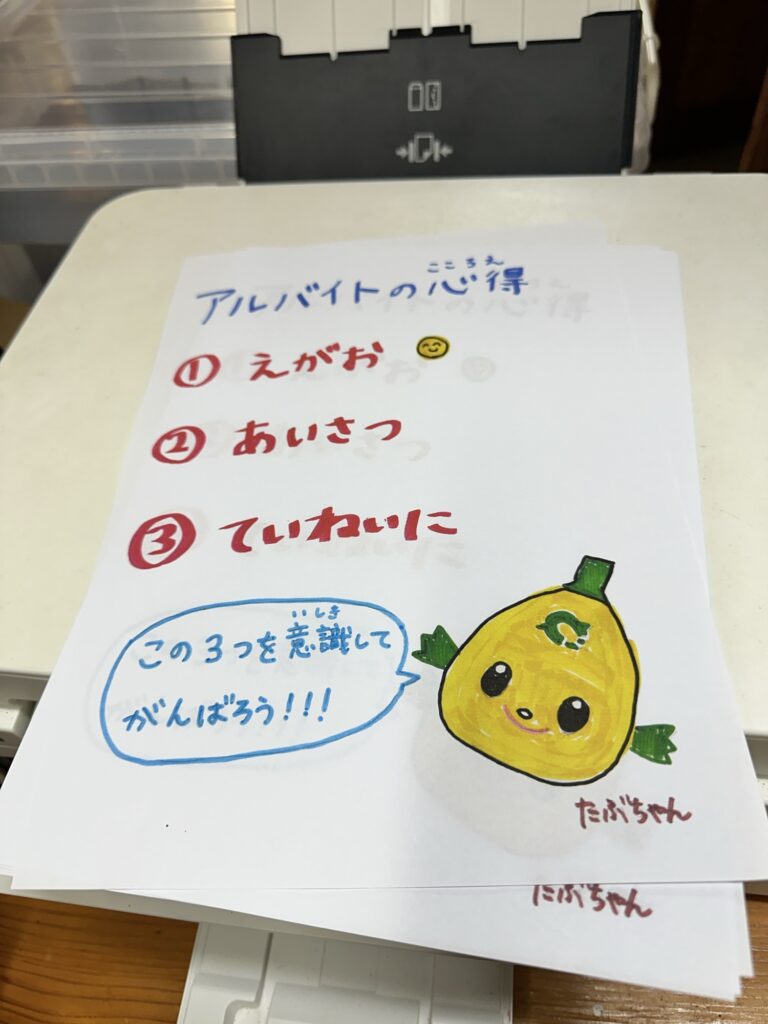 アルバイトの心得
こころえ
① えがお
② あいさつ
③ ていねいに
この3つを意識して
いしき
がんばろう!!!
たぶちゃん
たぶちゃん